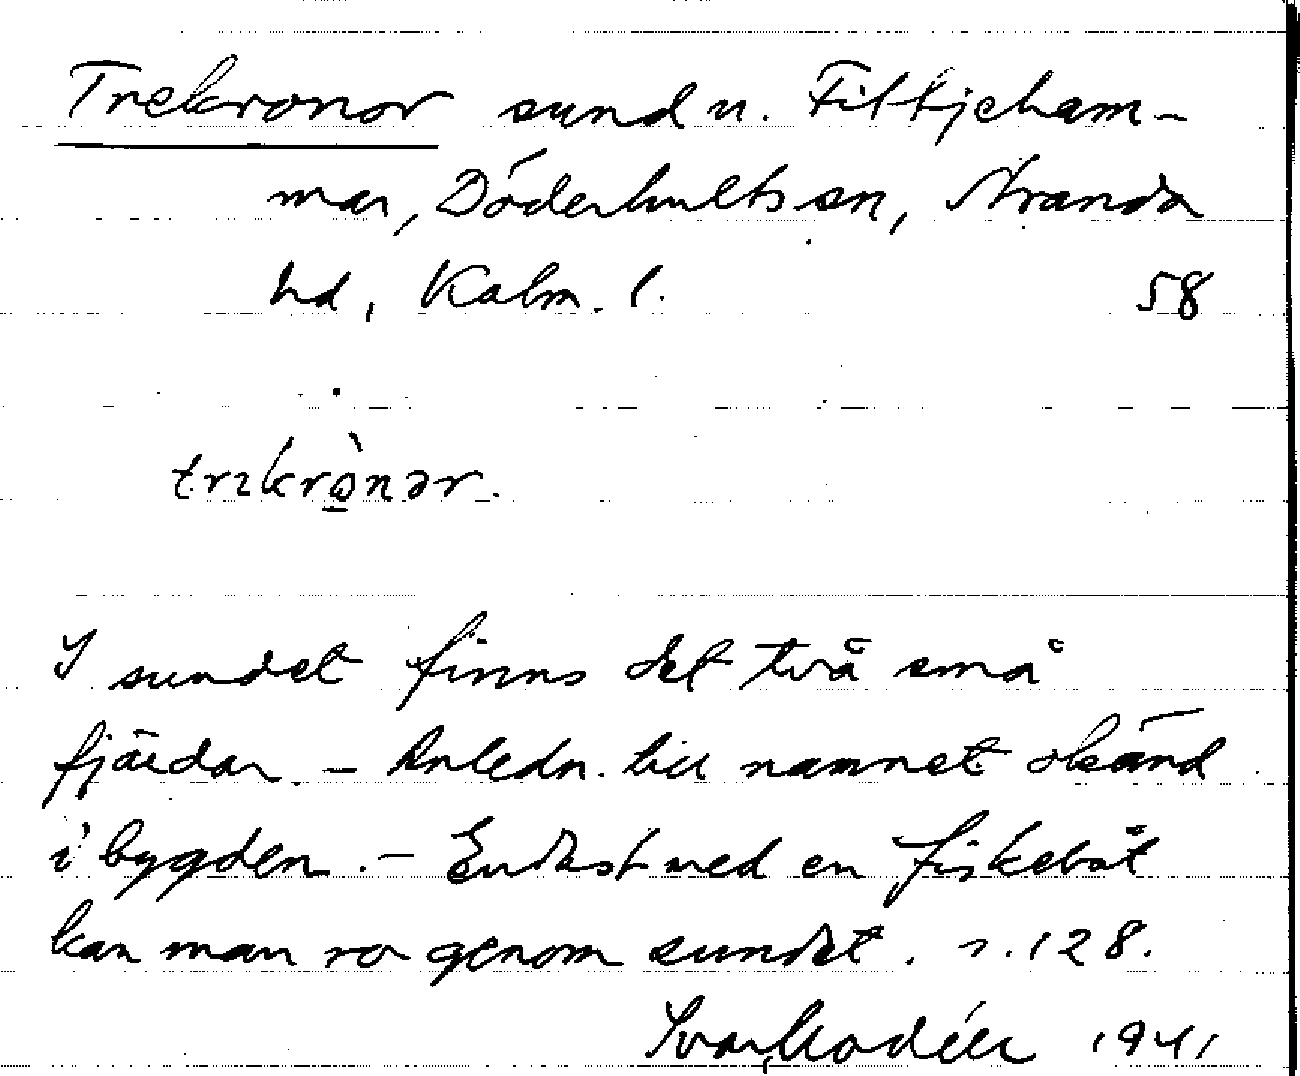 Trekronor sund u. Fittjeham-
mar, Döderhults sn, Stranda
hd, Kalm. l. 58
trɩkrò̱nər.
I sundet finns det två små
fjärdar. – Anledn. till namnet okänd
i bygden. – Endast med en fiskebåt
kan man ro genom sundet. s. 128.
1941